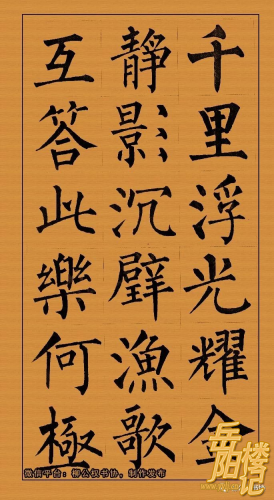 千里浮光耀金
静影沉璧漁歌
互答此樂何極
微信平台：柳公权书协，制作发布
岳阳楼记